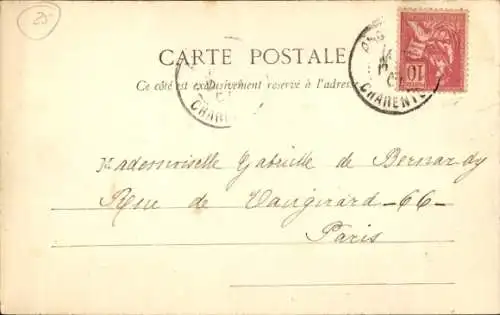 25
CARTE POSTALE
Ce côté est exclusivement reservé à l'adresse
10
CHARENTE
CHARENTE
Mademoiselle Gabrielle de Bernardy
Rue de Vaugirard - 66 -
Paris